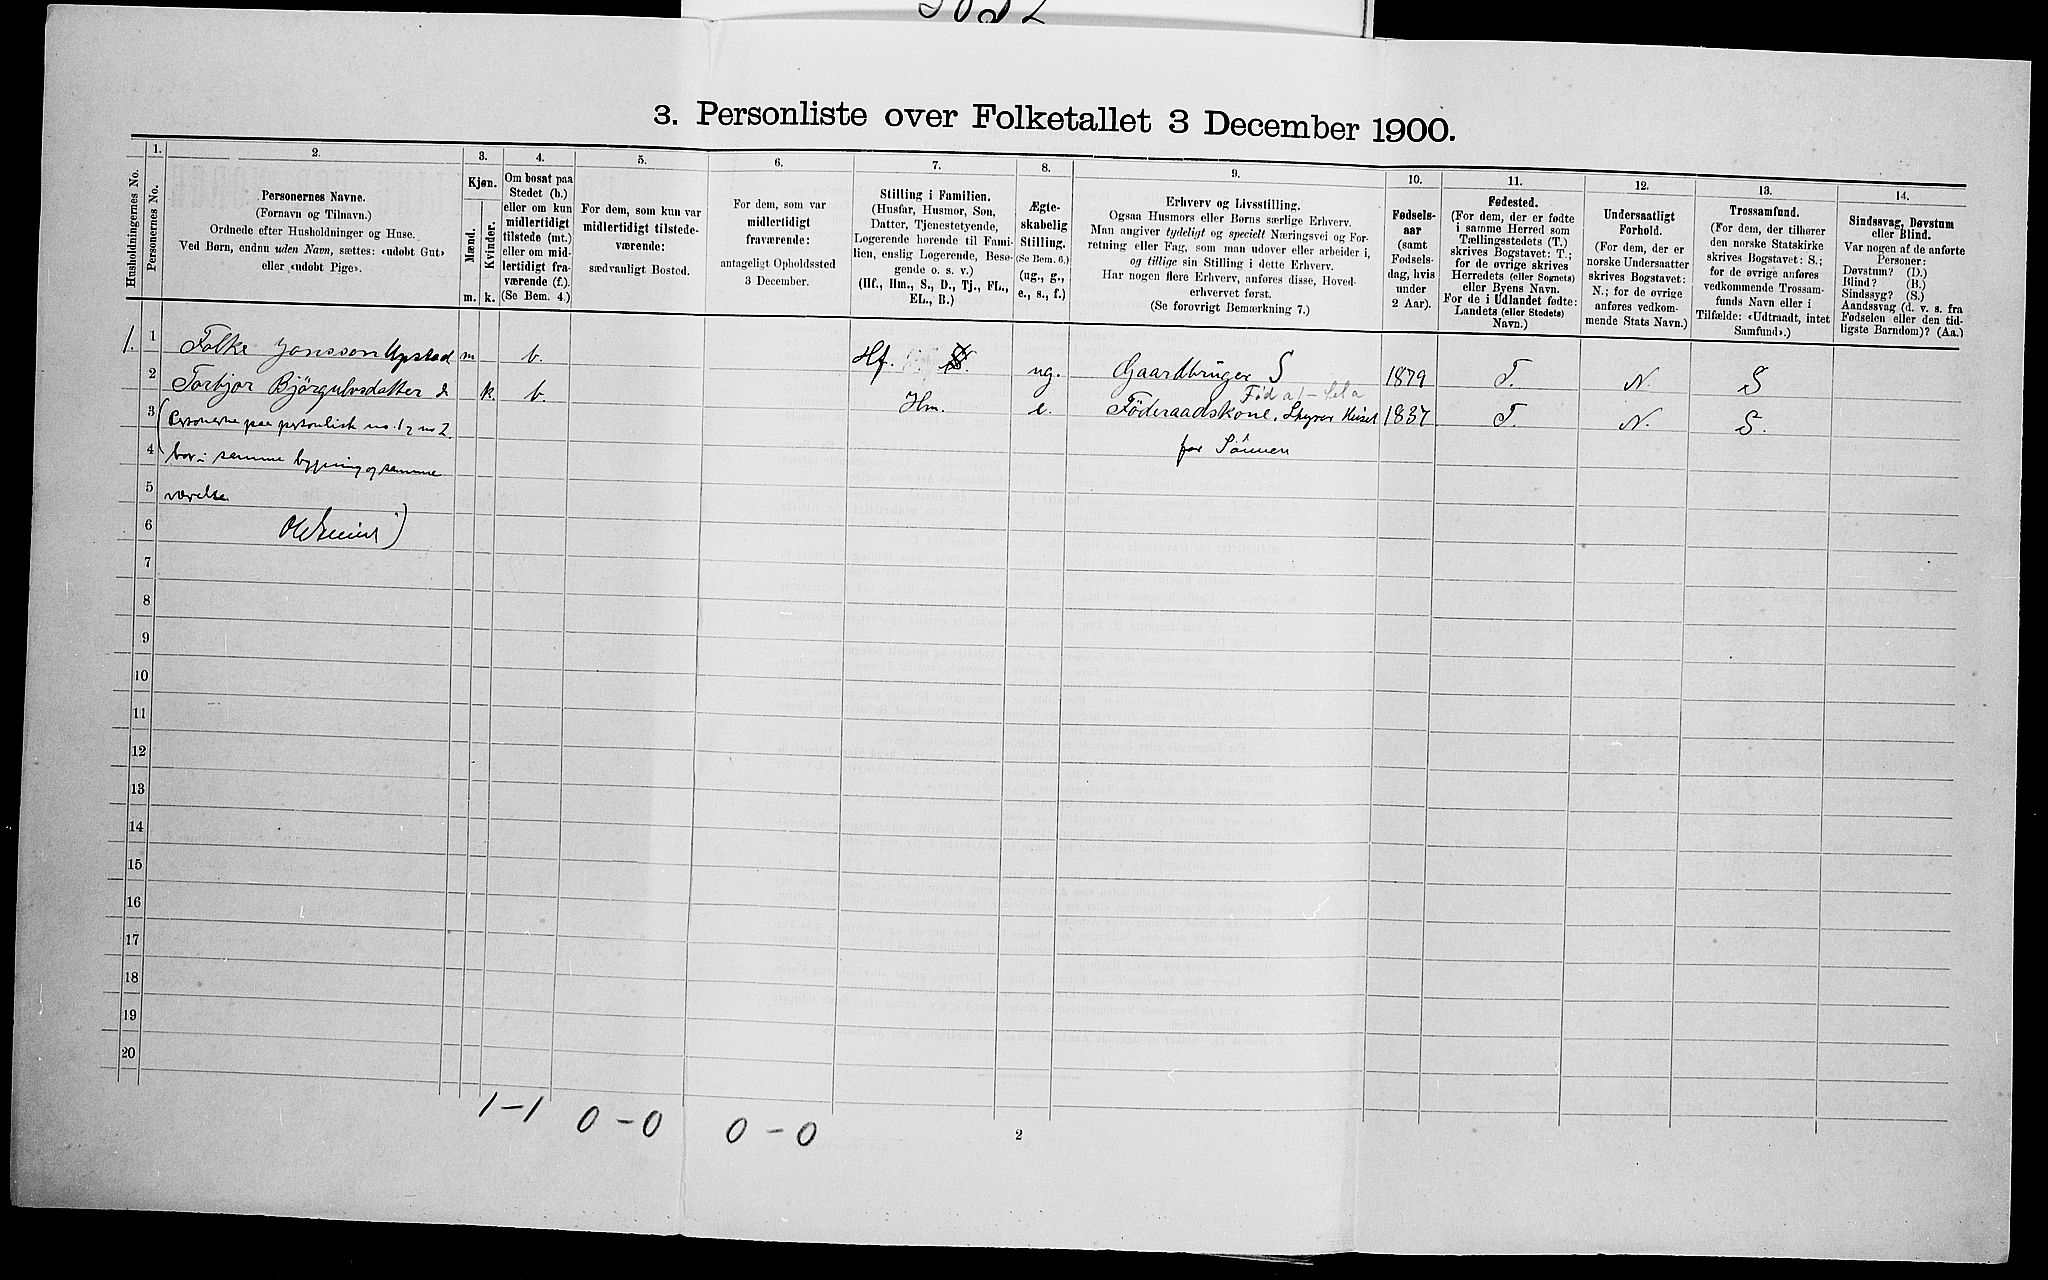 3. Personliste over Folketallet 3 December 1900.
Husholdningernes No.
1.
Personernes No.
2.
Personernes Navne.
(Fornavn og Tilnavn.)
Ordnede efter Husholdninger og Huse.
Ved Børn, endnu uden Navn, sættes: «udøbt Gut»
eller «udøbt Pige».
3.
Kjøn.
Mænd.
Kvinder.
m. k.
4.
Om bosat paa
Stedet (b.)
eller om kun
midlertidigt
tilstede (mt.)
eller om mid-
lertidigt fra-
værende (f.).
(Se Bem. 4.)
5.
For dem, som kun var
midlertidigt tilstede-
værende:
sædvanligt Bosted.
6.
For dem, som var
midlertidigt
fraværende:
antageligt Opholdssted
3 December.
7.
Stilling i Familien.
(Husfar, Husmor, Søn,
Datter, Tjenestetyende,
Logerende hørende til Fami-
lien, enslig Logerende, Besø-
gende o. s. v.)
(Hf., Hm., S., D., Tj., FL.,
EL., B.)
8.
Ægte-
skabelig
Stilling.
(Se Bem. 6.)
(ug., g.,
e., s., f.)
9.
Erhverv og Livsstilling.
Ogsaa Husmors eller Børns særlige Erhverv.
Man angiver tydeligt og specielt Næringsvei og For-
retning eller Fag, som man udøver eller arbeider i,
og tillige sin Stilling i dette Erhverv.
Har nogen flere Erhverv, anføres disse, Hoved-
erhvervet først.
(Se forøvrigt Bemærkning 7.)
10.
Fødsels-
aar
(samt
Fødsels-
dag, hvis
under
2 Aar).
11.
Fødested.
(For dem, der er fødte
i samme Herred som
Tællingsstedets (T.)
skrives Bogstavet: T.;
for de øvrige skrives
Herredets (eller Sognets)
eller Byens Navn.
For de i Udlandet fødte:
Landets (eller Stedets)
Navn.)
12.
Undersaatligt
Forhold.
(For dem, der er
norske Undersaatter
skrives Bogstavet:
N.; for de øvrige
anføres vedkom-
mende Stats Navn.)
13.
Trossamfund.
(For dem, der tilhører
den norske Statskirke
skrives Bogstavet: S.;
for de øvrige anføres
vedkommende Trossam-
funds Navn eller i
Tilfælde: «Udtraadt, intet
Samfund».)
14.
Sindssvag, Døvstum
eller Blind.
Var nogen af de anførte
Personer:
Døvstum? (D.)
Blind? (B.)
Sindssyg? (S.)
Aandssvag (d. v. s. fra
Fødselen eller den tid-
ligste Barndom)? (Aa.)
1. 1 Folke Jonsson Upstad m b. Hf. ug. Gaardbruger S 1879 T. N. S
2 Torbjor Björgulvsdatter k. b. Hm. e. Föderaadskone. Styrer Huset 1837 T. N. S.
for Sönnen
3 (Personerne paa personliste no. 1 og no 2.
4 bor i samme bygning og samme
5 værelse.
6
7
8
9
10
11
12
13
14
15
16
17
18
19
20
1-1 0-0 0-0
2